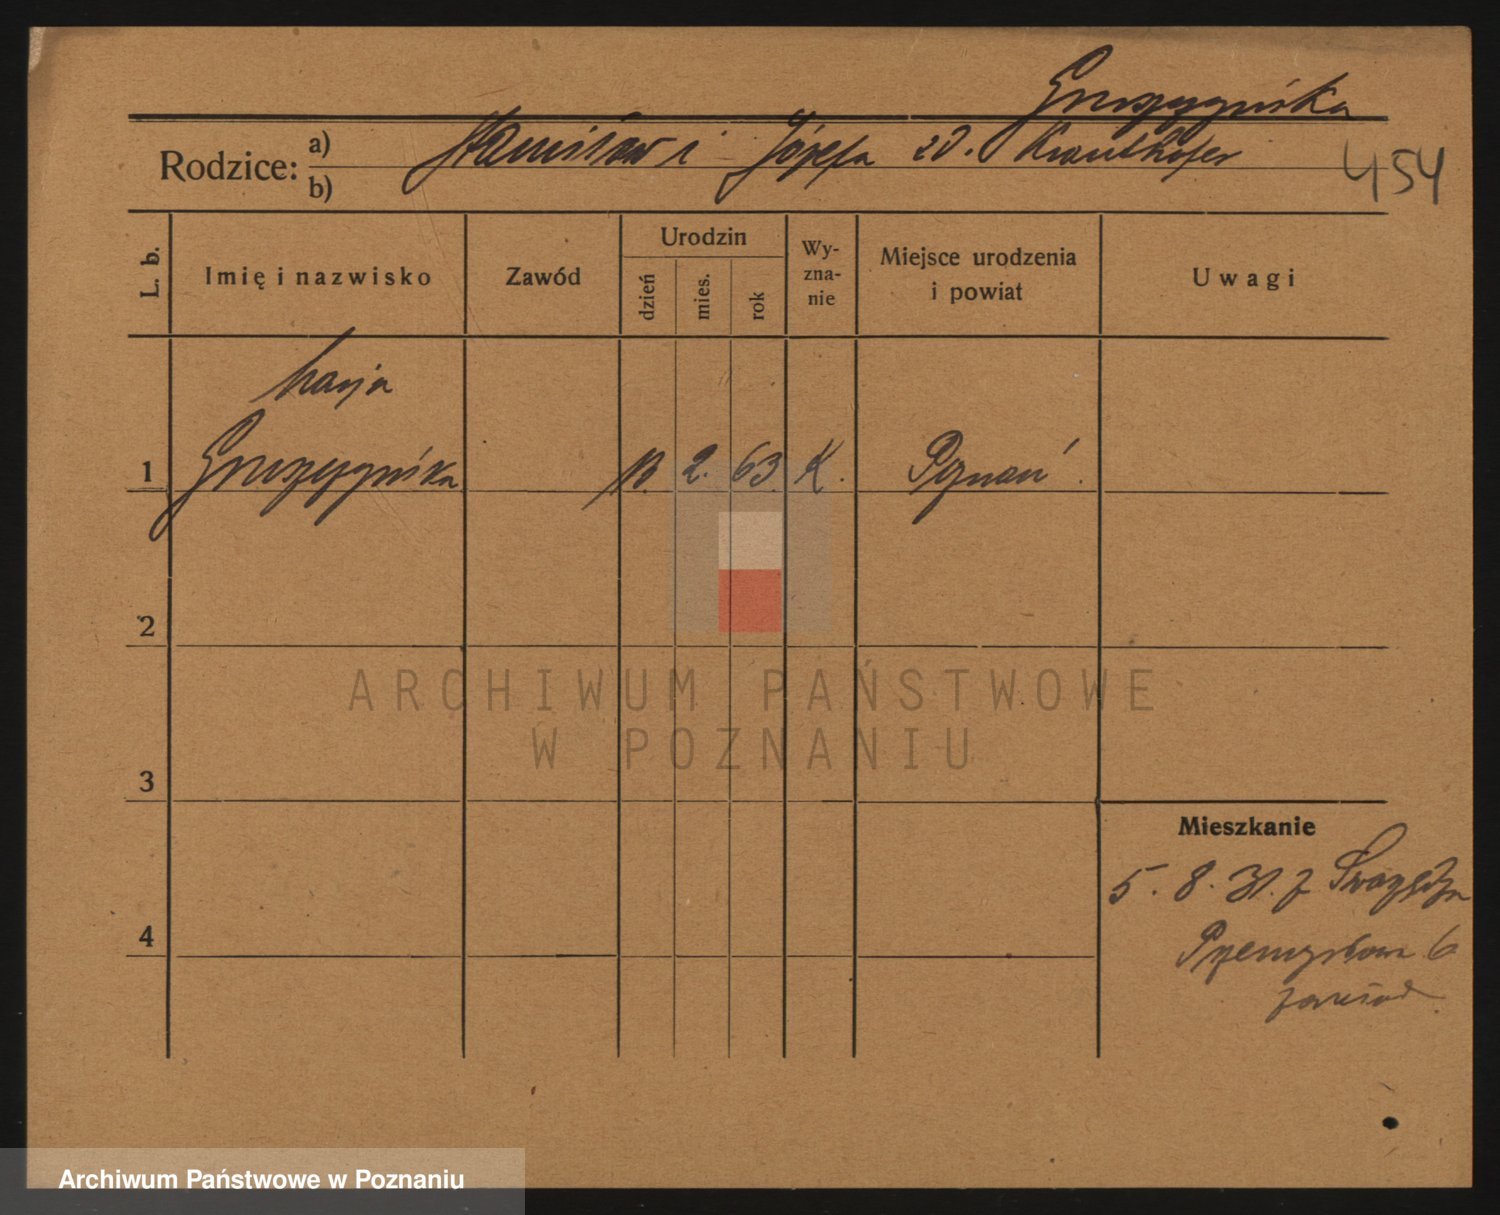 Gruszczyńska
Rodzice: a) Stanisław i Józefa zd. Krauthofer
b)
454
L. b.
Imię i nazwisko
Zawód
Urodzin
dzień
mies.
rok
Wy-
zna-
nie
Miejsce urodzenia
i powiat
Uwagi
Marja
1 Gruszczyńska 2. 63. K. Poznań.
2
3
4
Mieszkanie
5. 8. 31. z Swarzędza
Przemysłowa 6
ARCHIWUM PAŃSTWOWE
W POZNANIU
Archiwum Państwowe w Poznaniu